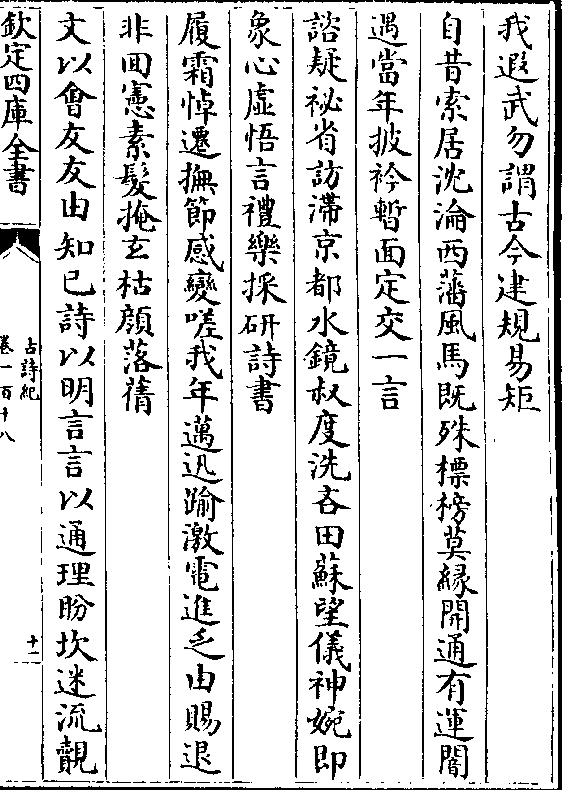 我遐武勿謂古今建規易矩
自昔索居沈淪西藩風馬既殊標榜莫緣開通有運闇
遇當年披衿暫面定交一言
諮疑祕省訪滯京都水鏡叔度洗吝田蘇望儀神婉即
象心虛悟言禮樂採研詩書
履霜悼遷撫節感變嗟我年邁迅踰激電進乏由賜退
非回憲素髮掩玄枯顔落蒨
文以會友友由知己詩以明言言以通理盼坎迷流覿
欽定四庫全書
古詩紀
卷一百十八
十一